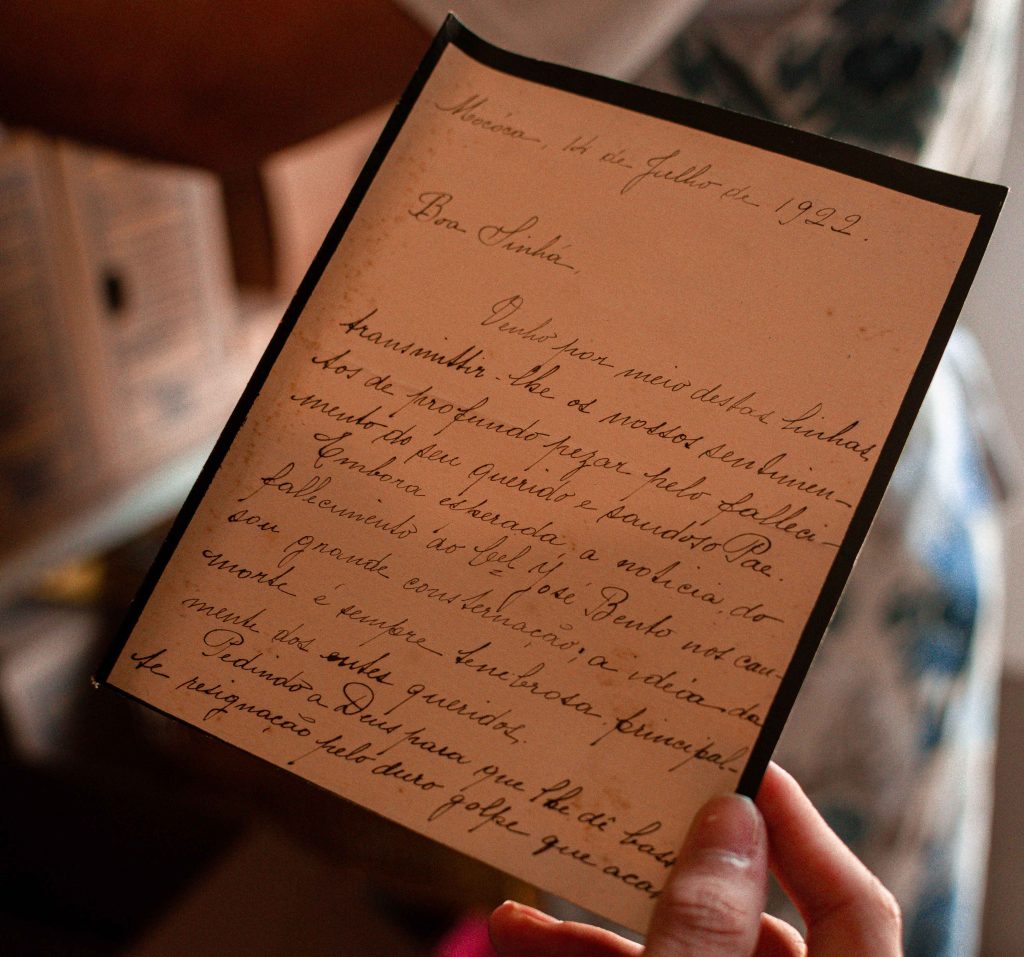 Mocóca, 14 de Julho de 1922.
Boa Sinhá,
Venho por meio destas linhas
transmittir-lhe os nossos sentimen-
tos de profundo pezar pelo falleci-
mento do seu querido e saudoso Pae.
Embora esperada, a noticia do
fallecimento do Cel José Bento nos cau-
sou grande consternação; a idéia da
morte é sempre tenebrosa, principal-
mente dos entes queridos.
Pedindo a Deus para que lhe dê bas
te resignação pelo duro golpe que aca